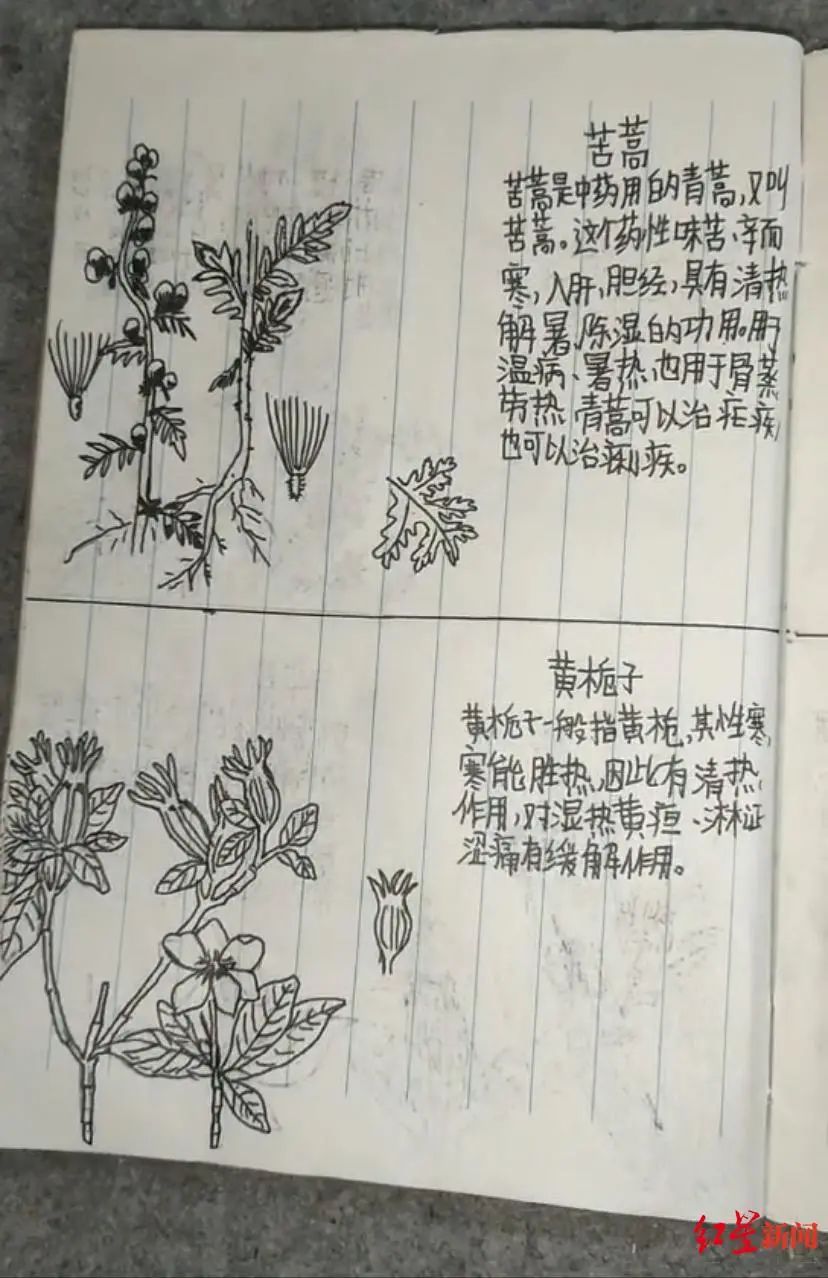 苦蒿
苦蒿是中药用的青蒿，又叫
苦蒿。这个药性味苦、辛而
寒，入肝，胆经，具有清热
解暑、除湿的功用。用于
温病、暑热，也用于骨蒸
劳热，青蒿可以治疟疾
也可以治痢疾。
黄栀子
黄栀子一般指黄栀，其性寒，
寒能胜热，因此有清热
作用，对湿热黄疸、淋证
涩痛有缓解作用。
红星新闻